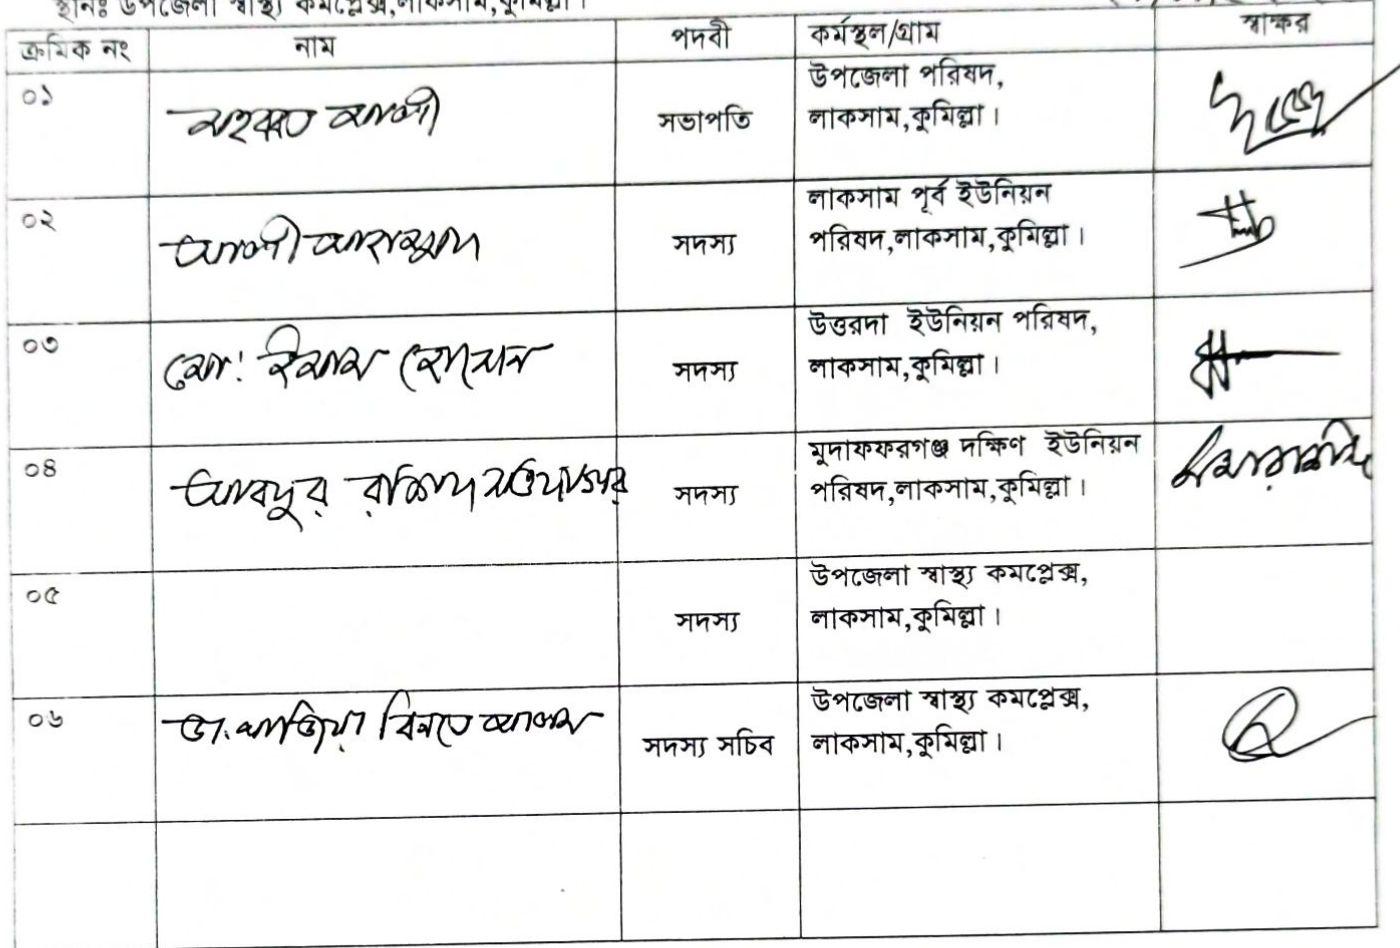 স্থানঃ উপজেলা স্বাস্থ্য কমপ্লেক্স,লাকসাম,কুমিল্লা।
ক্রমিক নং নাম পদবী কর্মস্থল/গ্রাম স্বাক্ষর
০১ মহব্বত আলী সভাপতি উপজেলা পরিষদ,
লাকসাম,কুমিল্লা।
০২ আলী আহাম্মদ সদস্য লাকসাম পূর্ব ইউনিয়ন
পরিষদ,লাকসাম,কুমিল্লা।
০৩ মো: ইমাম হোসেন সদস্য উত্তরদা ইউনিয়ন পরিষদ,
লাকসাম,কুমিল্লা।
০৪ আবদুর রশিদ সদস্য মুদাফফরগঞ্জ দক্ষিণ ইউনিয়ন
পরিষদ,লাকসাম,কুমিল্লা।
০৫ সদস্য উপজেলা স্বাস্থ্য কমপ্লেক্স,
লাকসাম,কুমিল্লা।
০৬ ডা. নাজিয়া বিনতে আলম সদস্য সচিব উপজেলা স্বাস্থ্য কমপ্লেক্স,
লাকসাম,কুমিল্লা।